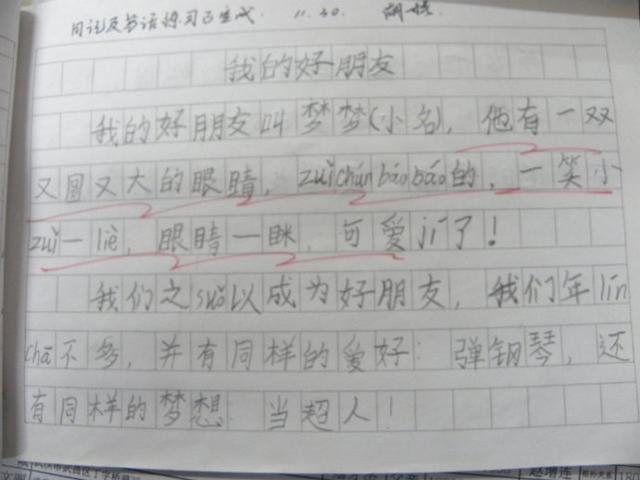 词语及书语练习已完成. 11.30.
我的好朋友
我的好朋友叫梦梦(小名),他有一双
又圆又大的眼睛,zuǐchúnbáobáo的,一笑小
zuǐ一liě,眼睛一眯,可爱jí了!
我们之suǒ以成为好朋友,我们年lín
chā不多,并有同样的爱好:弹钢琴,还
有同样的梦想:当超人!
赵增连